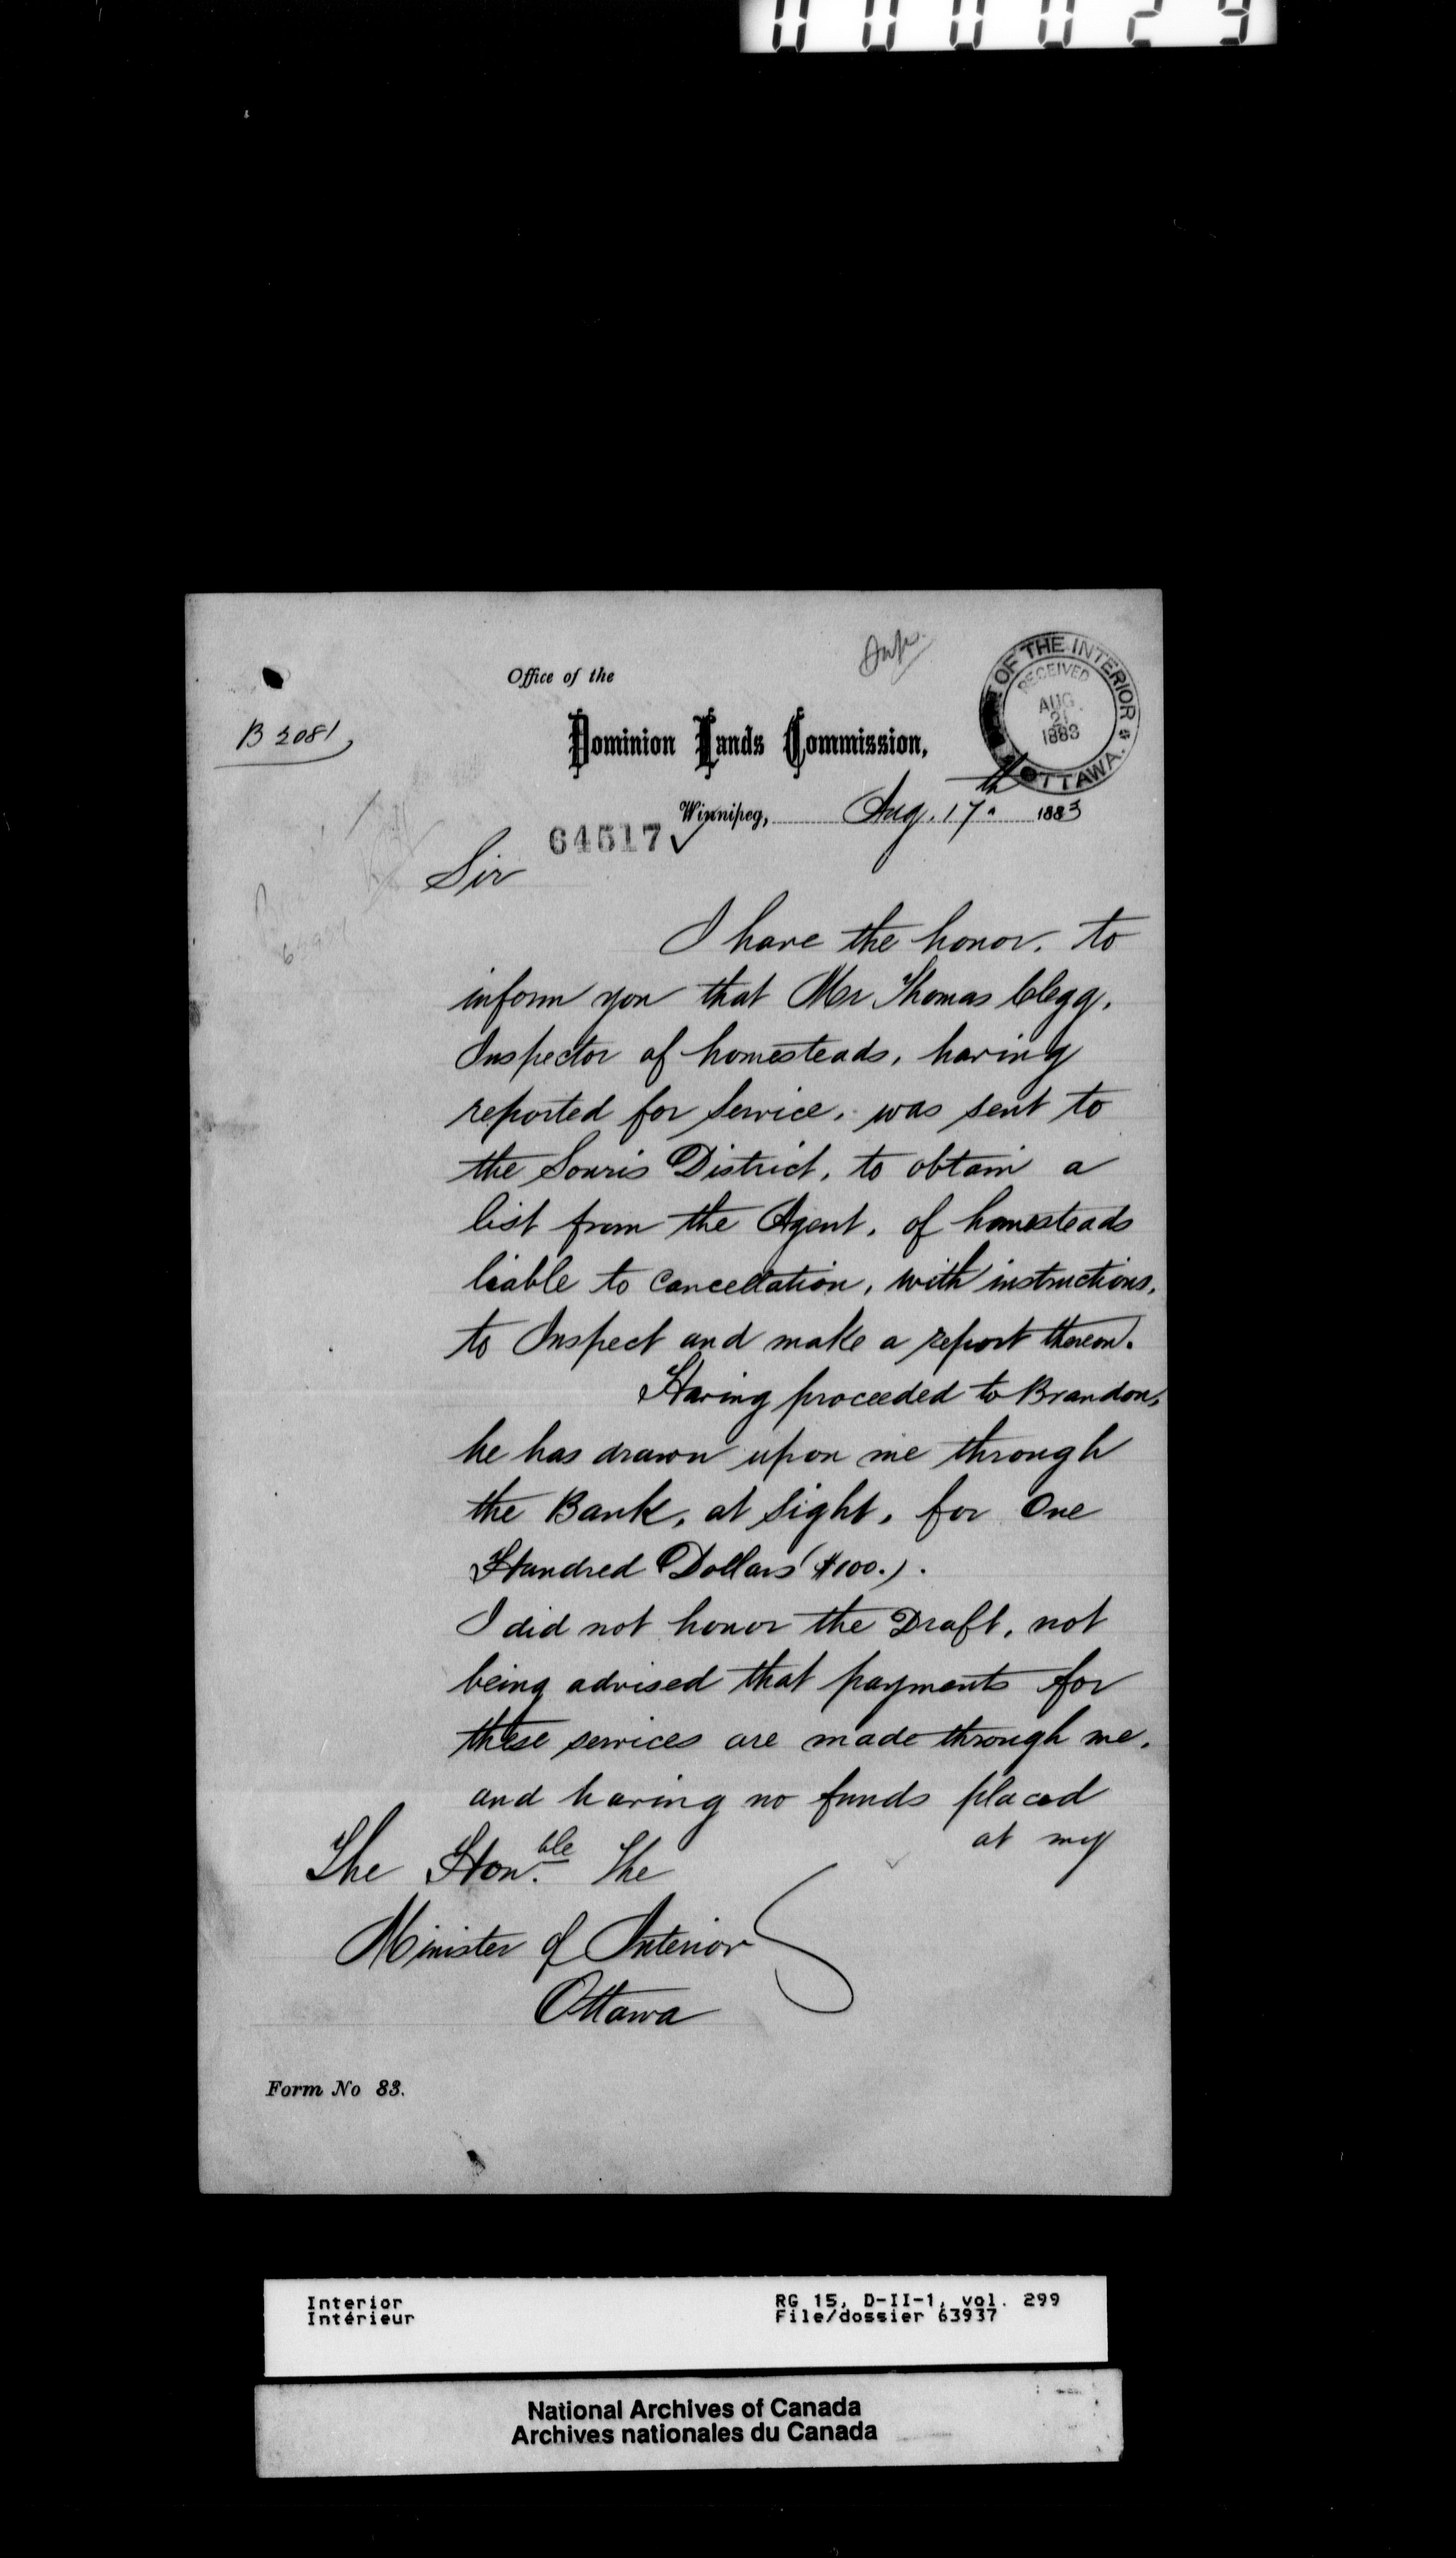 000029
Office of the
B 2081
Dominion Lands Commission,
DEPT OF THE INTERIOR
RECEIVED
AUG.
21
1883
OTTAWA.
Winnipeg, Aug. 17th 1883
64517
Sir
I have the honor. to
inform you that Mr Thomas Clegg,
Inspector of homesteads, having
reported for service, was sent to
the Souris District, to obtain a
list from the Agent, of homesteads
liable to cancellation, with instructions,
to Inspect and make a report thereon.
Having proceeded to Brandon,
he has drawn upon me through
the Bank, at sight, for One
Hundred Dollars ($100.).
I did not honor the Draft, not
being advised that payments for
these services are made through me,
and having no funds placed
at my
The Honble The
Minister of Interior
Ottawa
Form No 83.
Interior
Intérieur
RG 15, D-II-1, vol. 299
File/dossier 63937
National Archives of Canada
Archives nationales du Canada